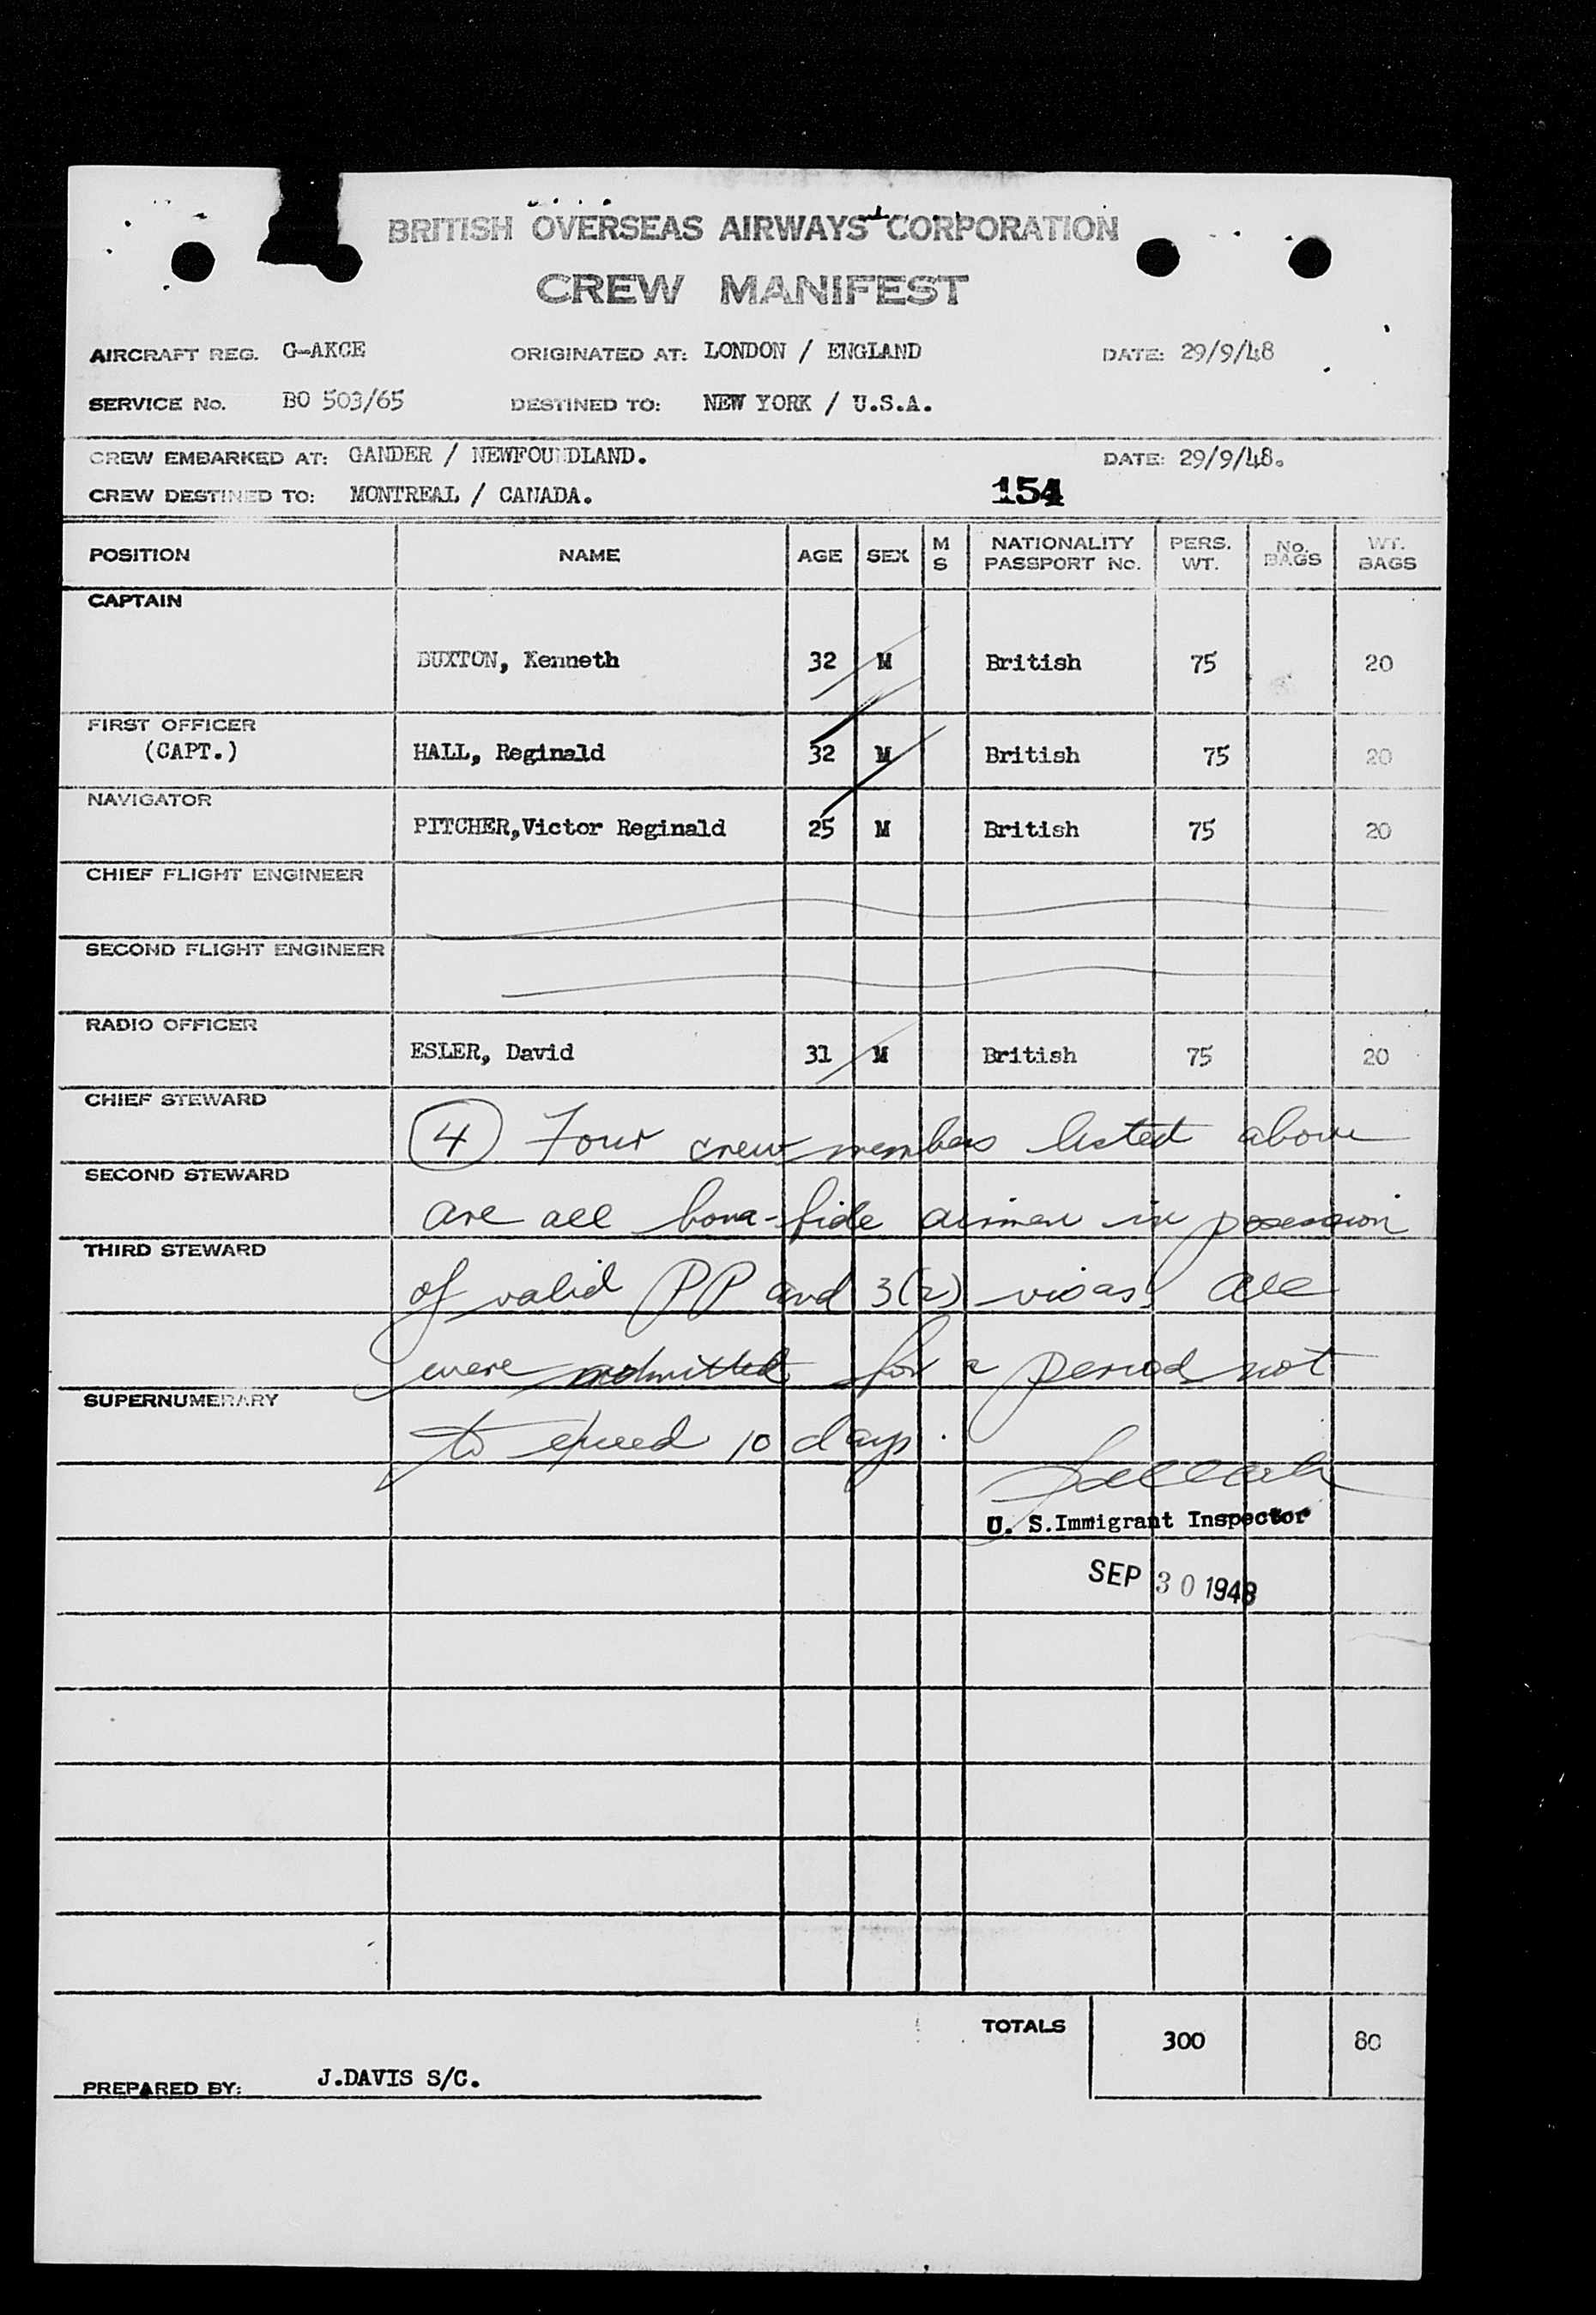 BRITISH OVERSEAS AIRWAYS CORPORATION
CREW MANIFEST
AIRCRAFT REG. G-AKCE ORIGINATED AT: LONDON / ENGLAND DATE: 29/9/48
SERVICE No. BO 503/65 DESTINED TO: NEW YORK / U.S.A.
CREW EMBARKED AT: GANDER / NEWFOUNDLAND. DATE: 29/9/48.
CREW DESTINED TO: MONTREAL / CANADA. 154
POSITION NAME AGE SEX M S NATIONALITY PASSPORT No. PERS. WT. No. BAGS WT. BAGS
CAPTAIN
BUXTON, Kenneth 32 M British 75 20
FIRST OFFICER
(CAPT.) HALL, Reginald 32 M British 75 20
NAVIGATOR
PITCHER,Victor Reginald 25 M British 75 20
CHIEF FLIGHT ENGINEER
SECOND FLIGHT ENGINEER
RADIO OFFICER
ESLER, David 31 M British 75 20
CHIEF STEWARD
4 Four crew members listed above
SECOND STEWARD
are all bona-fide airmen in posession
THIRD STEWARD
of valid PP and 3(2) visas. All
were admitted for a period not
SUPERNUMERARY
to exceed 10 days.
U. S.Immigrant Inspector
SEP 30 1948
TOTALS 300 80
PREPARED BY: J.DAVIS S/C.